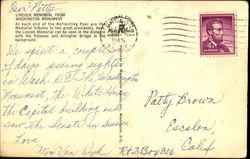 Dear Patty
LINCOLN MEMORIAL FROM
WASHINGTON MONUMENT
At each end of the Reflecting Pool are the
Memorial tributes to two great presidents.
the Lincoln Memorial can be seen in the distance
with the Potomac and Arlington Bridge in the
We spent a couple
of days seeing sights
in Wash. D.C. The Washington
Monument, the White House
the Capitol building and
saw the Senate in session
Love
Mrs Van Wyk
Patty Brown
Escalon,
Calif
Rt 3 Box 366